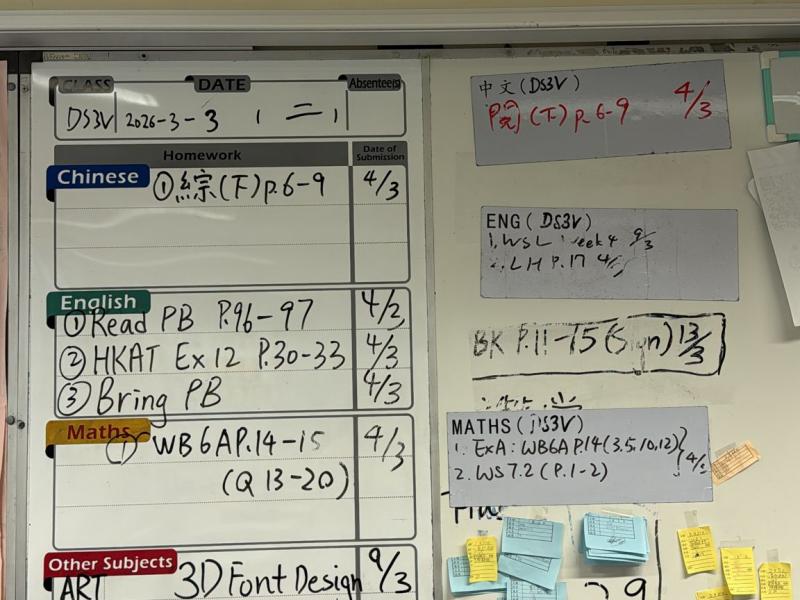 CLASS DATE Absentee(s)
DS3V 2026-3-3 ( 二 )
Homework Date of Submission
Chinese
① 綜(下)p.6-9 4/3
English
① Read PB P.96-97 4/2
② HKAT Ex 12 P.30-33 4/3
③ Bring PB 4/3
Maths
① WB6A P.14-15 4/3
(Q 13-20)
Other Subjects
ART 3D Font Design 9/3
中文(DS3V)
(下) p.6-9 4/3
ENG(DS3V)
1. WS L week 4 9/3
LH P.17 4/
BK P.11-15 (Sign) 13/3
MATHS(DS3V)
1. ExA: WB6A P.14(3,5,10,12)
2. WS7.2 (P.1-2) 4/
29